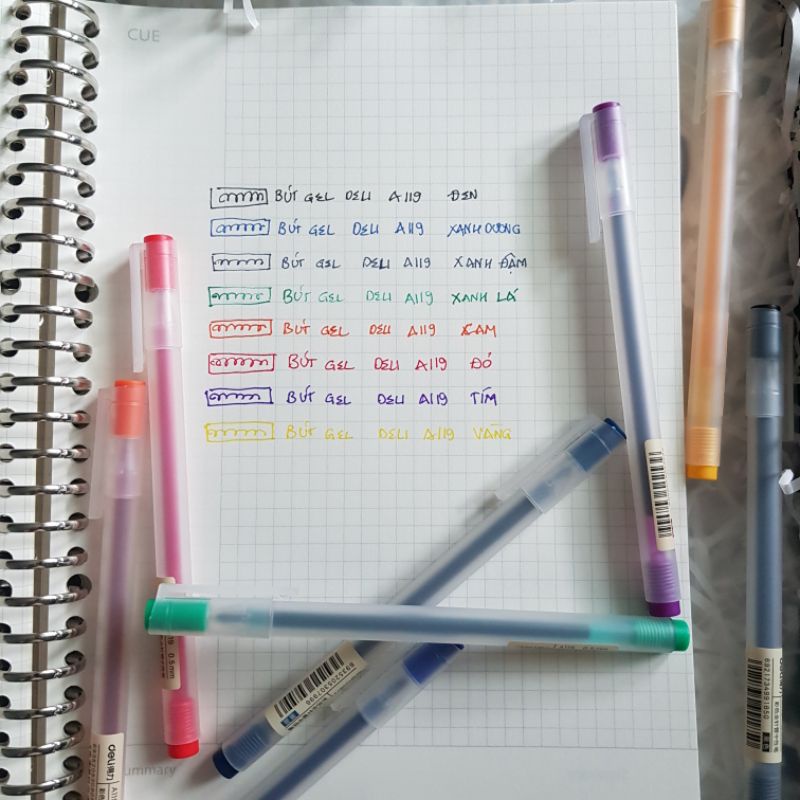 CUE
BÚT GEL DELI A119 ĐEN
BÚT GEL DELI A119 XANH DƯƠNG
BÚT GEL DELI A119 XANH ĐẬM
BÚT GEL DELI A119 XANH LÁ
BÚT GEL DELI A119 CAM
BÚT GEL DELI A119 ĐỎ
BÚT GEL DELI A119 TÍM
BÚT GEL DELI A119 VÀNG
0.5mm
deli
ummary